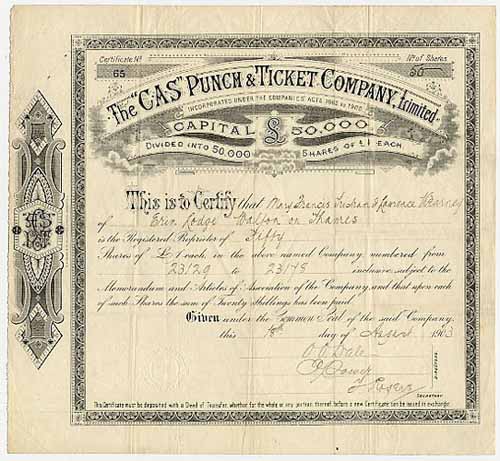 Certificate No. No. of Shares
65 50
The "CAS" Punch & Ticket Company, Limited.
INCORPORATED UNDER THE COMPANIES' ACTS, 1862 to 1900.
CAPITAL £ 50,000
DIVIDED INTO 50,000 SHARES OF £1 EACH.
This is to Certify that Mary Francis Lawrence Kearney
of Erin Lodge Walton on Thames
is the Registered Proprietor of Fifty
Shares of £1 each, in the above named Company, numbered from
23129 to 23178 inclusive, subject to the
Memorandum and Articles of Association of the Company, and that upon each
of such Shares the sum of Twenty Shillings has been paid.
Given under the Common Seal of the said Company,
this 18th day of August 1903
DIRECTORS
SECRETARY
This Certificate must be deposited with a Deed of Transfer, whether for the whole or any portion thereof, before a new Certificate can be issued in exchange.